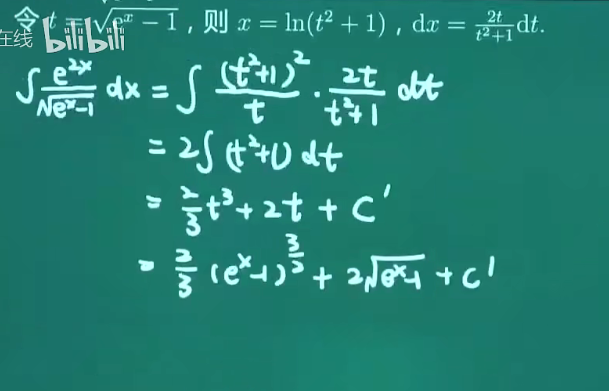 令 t = √(eˣ − 1) , 则 x = ln(t² + 1) , dx = 2t/(t²+1) dt.
在线 bilibili
∫ e²ˣ/√(eˣ-1) dx = ∫ (t²+1)²/t · 2t/(t²+1) dt
= 2∫ (t²+1) dt
= 2/3 t³ + 2t + C'
= 2/3 (eˣ-1)^(3/2) + 2√(eˣ-1) + C'